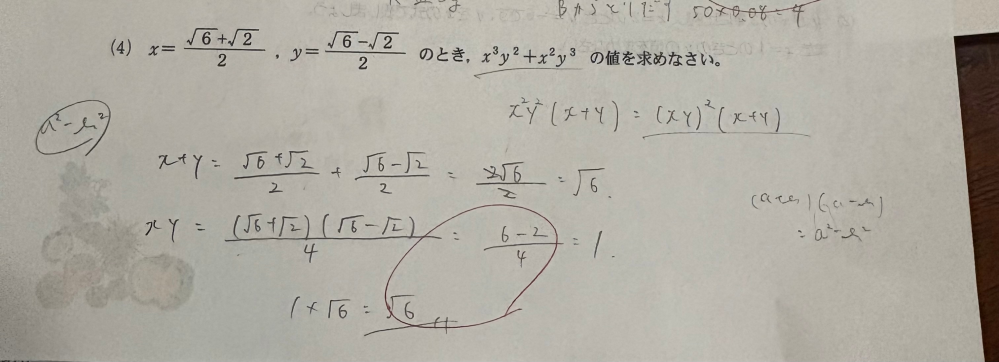 50×0.08=4
(4) x=(√6+√2)/2, y=(√6−√2)/2 のとき, x³y²+x²y³ の値を求めなさい。
x²y²(x+y) = (xy)²(x+y)
a²−b²
x+y = (√6+√2)/2 + (√6−√2)/2 = 2√6/2 = √6.
xy = (√6+√2)(√6−√2)/4 = (6−2)/4 = 1.
(a+b)(a−b)
= a²−b²
1×√6 = √6